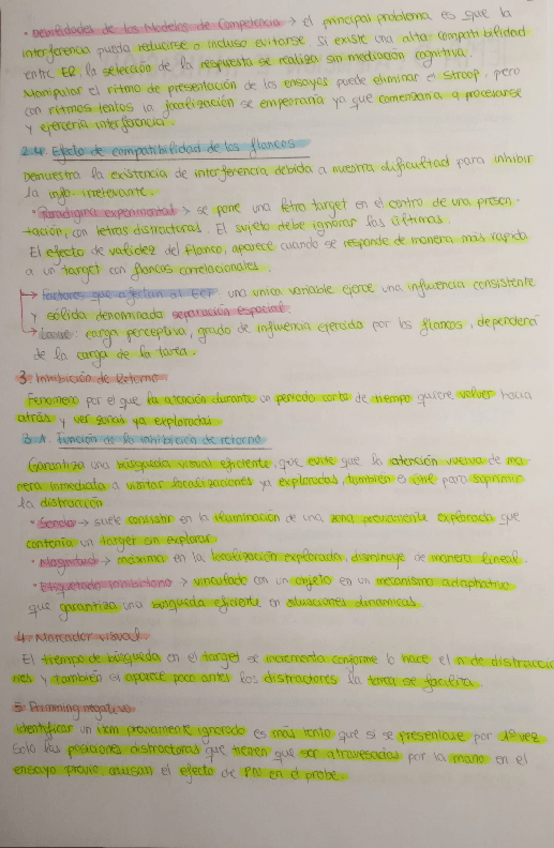 · Debilidades de los Modelos de Competencia → el principal problema es que la
interferencia pueda reducirse o incluso evitarse si existe una alta compatibilidad
entre ER, la selección de la respuesta se realiza sin mediación cognitiva.
Manipular el ritmo de presentación de los ensayos puede eliminar el Stroop, pero
con ritmos lentos la focalización se empeoraría ya que comenzaría a procesarse
y ejercería interferencia.
2.4. Efecto de compatibilidad de los flancos
Demuestra la existencia de interferencia debida a nuestra dificultad para inhibir
la info. irrelevante.
· Paradigma experimental → se pone una letra target en el centro de una presen-
tación, con letras distractoras. El sujeto debe ignorar las últimas.
El efecto de validez del flanco, aparece cuando se responde de manera más rápida
a un target con flancos correlacionales.
→ Factores que afectan al ECF: una única variable ejerce una influencia consistente
y sólida denominada separación espacial.
→ : carga perceptiva, grado de influencia ejercida por los flancos, dependerá
de la carga de la tarea.
3. Inhibición de Retorno
Fenómeno por el que la atención durante un periodo corto de tiempo quiere volver hacia
atrás y ver zonas ya exploradas
3.1. Función de la inhibición de retorno
Garantiza una búsqueda visual eficiente, que evite que la atención vuelva de ma-
nera inmediata a visitar localizaciones ya exploradas, también sirve para suprimir
la distracción
· → suele consistir en la iluminación de una zona previamente explorada que
contenía un target sin explorar.
· Magnitud → máxima en la localización explorada, disminuye de manera lineal.
· Etiquetado inhibitorio → vinculado con un objeto en un mecanismo adaptativo
que garantiza una búsqueda eficiente en situaciones dinámicas.
4. Marcador visual
El tiempo de búsqueda en el target se incrementa conforme lo hace el n de distracto
res y también si aparece poco antes los distractores la tarea se facilita.
5. Primming negativo
identificar un ítem previamente ignorado es más lento que si se presentase por 1ª vez
Solo las posiciones distractoras que tienen que ser atravesadas por la mano en el
ensayo previo, causan el efecto de PN en el probe.